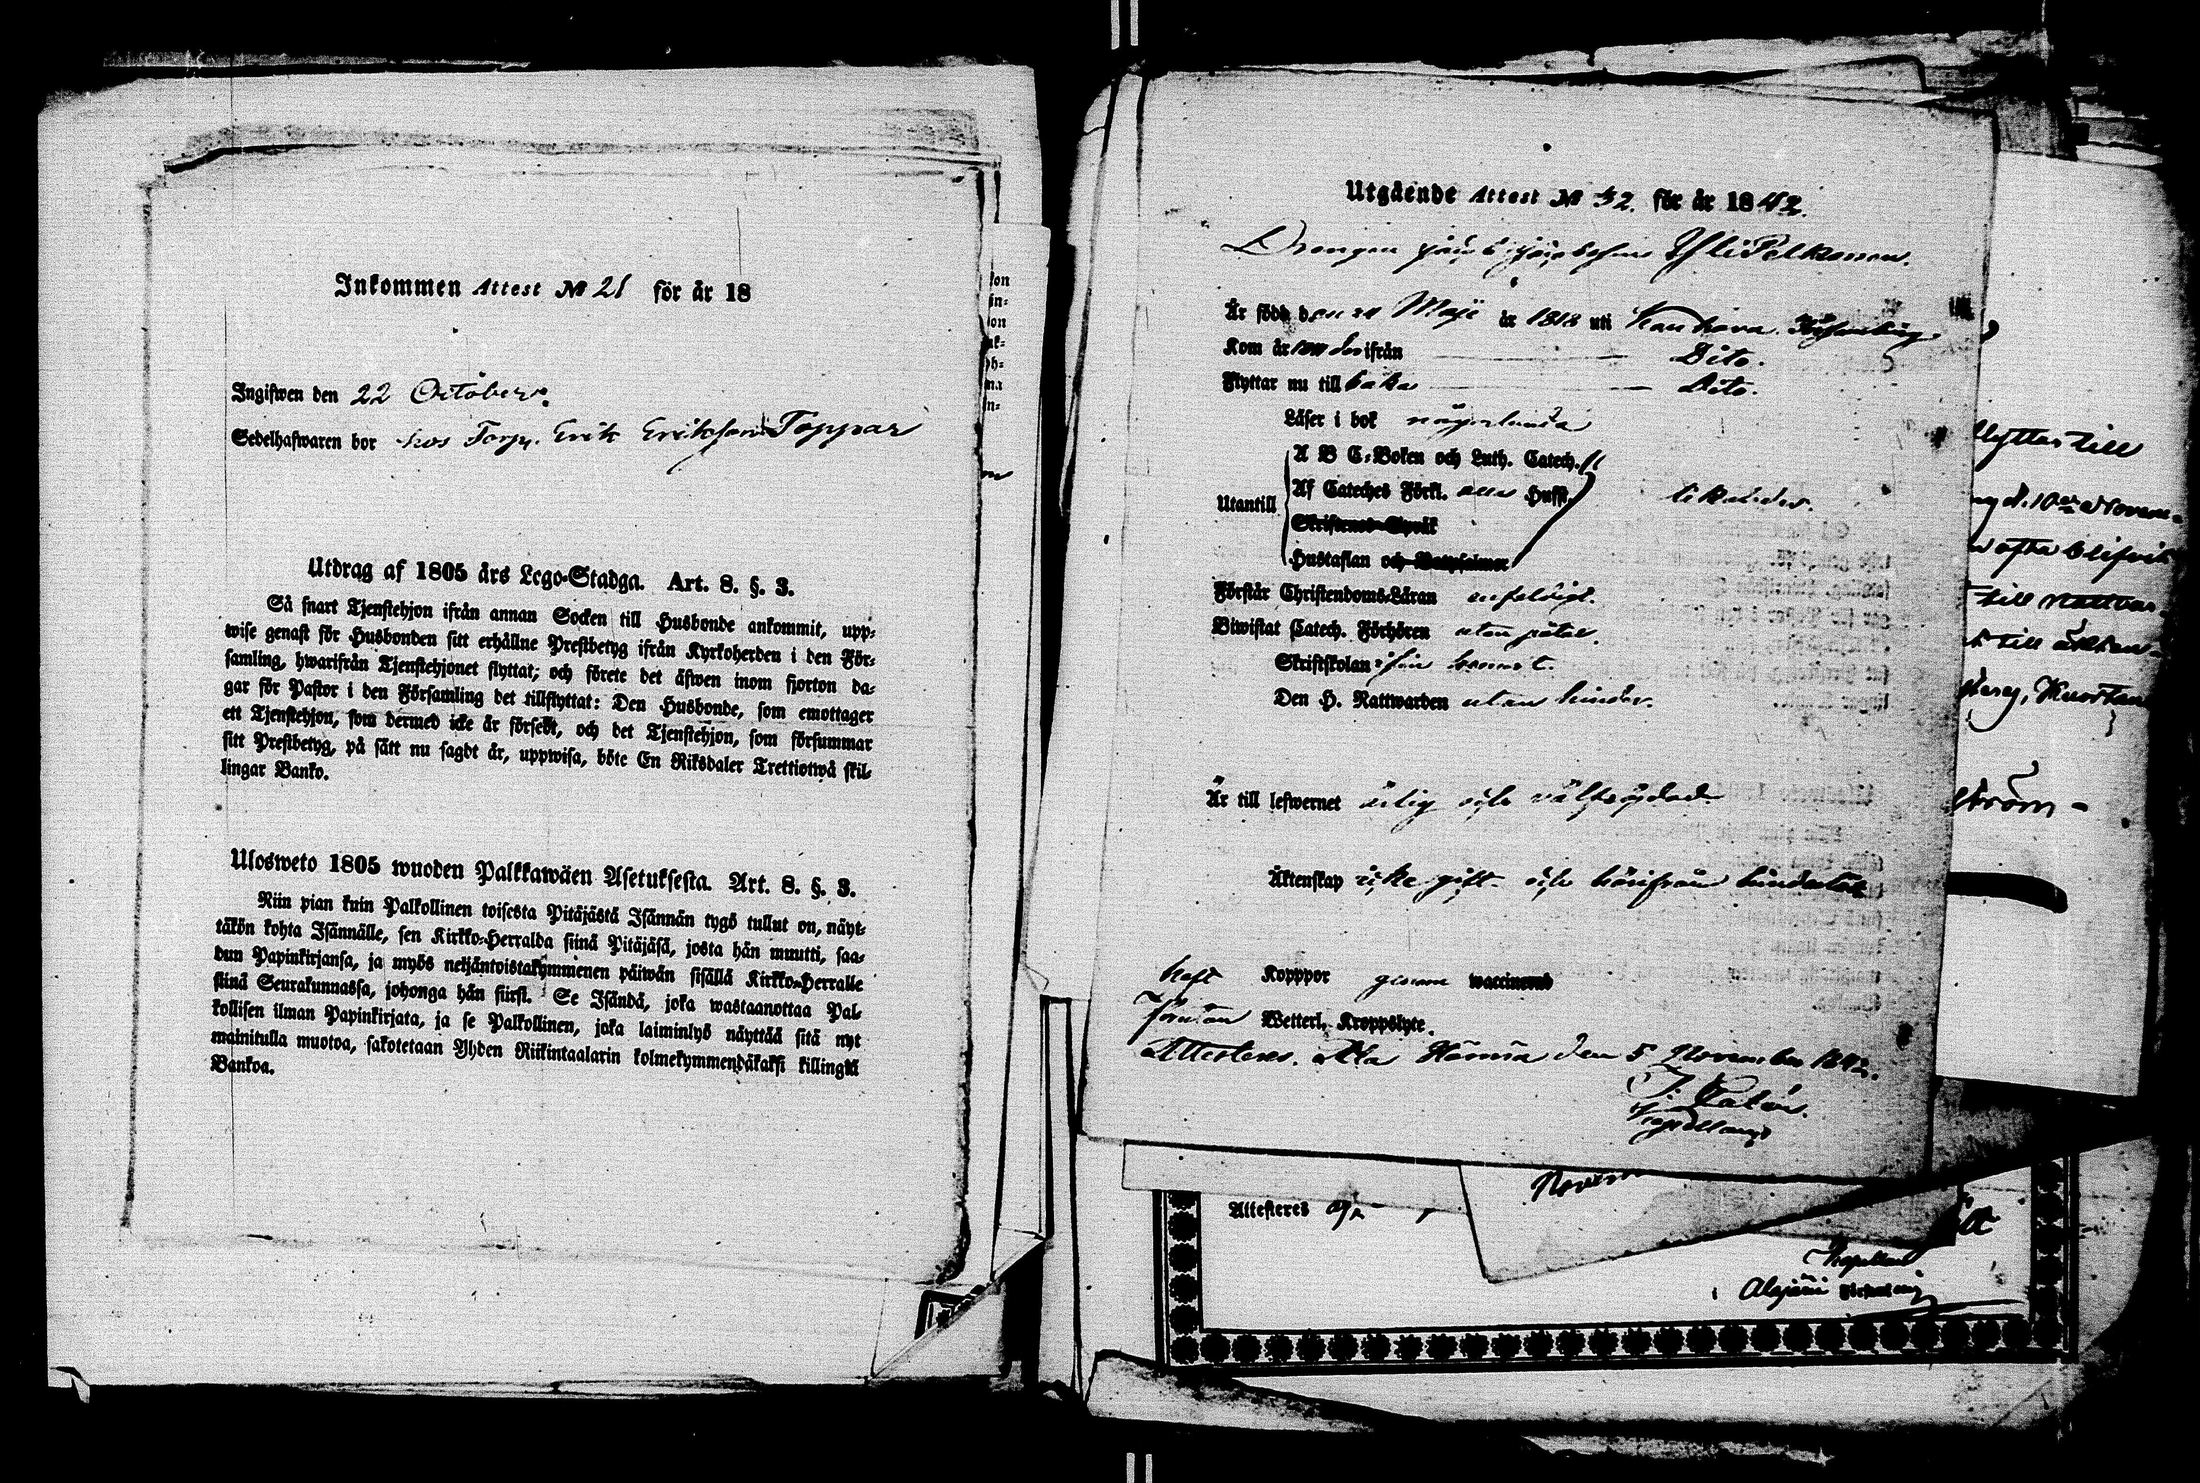 Inkommen Attest № 21 för år 18
Ingifwen den 22 October.
Sedelhafwaren bor hos Torp. Erik Eriksson Toppar
Utdrag af 1805 års Lego-Stadga. Art. 8. §. 3.
Så snart Tjenstehjon ifrån annan Socken till Husbonde ankommit, upp-
wise genast för Husbonden sitt erhållne Prestbetyg ifrån Kyrkoherden i den För-
samling, hwarifrån Tjenstehjonet flyttat; och förete det äfwen inom fjorton da-
gar för Pastor i den Församling det tillflyttat: Den Husbonde, som emottager
ett Tjenstehjon, som dermed icke är försedt, och det Tjenstehjon, som försummar
sitt Prestbetyg, på sätt nu sagdt är, uppwisa, böte En Riksdaler Trettiotwå skil-
lingar Banko.
Ulosweto 1805 wuoden Palkkawäen Asetuksesta. Art. 8. §. 3.
Niin pian kuin Palkollinen toisesta Pitäjästä Isännän tygö tullut on, näyt-
täkön kohta Isännälle, sen Kirkko-Herralda siinä Pitäjäsä, josta hän muutti, saa-
dun Papinkirjansa, ja myös neljäntoistakymmenen päiwän sisällä Kirkko-Herralle
siinä Seurakunnassa, johonga hän siirsi. Se Isändä, joka wastaanottaa Pal-
kollisen ilman Papinkirjata, ja se Palkollinen, joka laiminlyö näyttää sitä nyt
mainitulla muotoa, sakotetaan Yhden Riikintaalarin kolmekymmendäkaksi killingiä
Bankoa.
Utgående Attest № 32. för år 1842.
Drengen Jakob Jakobsson Yli Pelkonen.
Är född den 24 Maji år 1818 uti Kauhava
Kom år ifrån Dito.
Flyttar nu till baka Dito.
Läser i bok någorlunda
A B C-Boken och Luth. Catech.
Utantill Af Cateches Förkl. Husst. likaledes.
Skriftenes Språk
Hustaflan och Botpsalmer
Förstår Christendoms-Läran enfaldigt.
Biwistat Catech. Förhören utan påtal.
Skriftskolan
Den H. Nattwarden utan hinder.
Är till lefwernet ärlig och välfrägdad
Äktenskap icke gift och härifrån hinderlös
haft Kopppor genom waccinered
förutan Wetterl. Kroppslyte.
Attesteras. Ala Härmä den 5 November 1842.
Kapellan
flyttar till
d. 10de Novem-
ofta blifvit
till nattvar-
till äkten-
Kuortane
ström-
Attesteres
Kapellan
Alajärvi